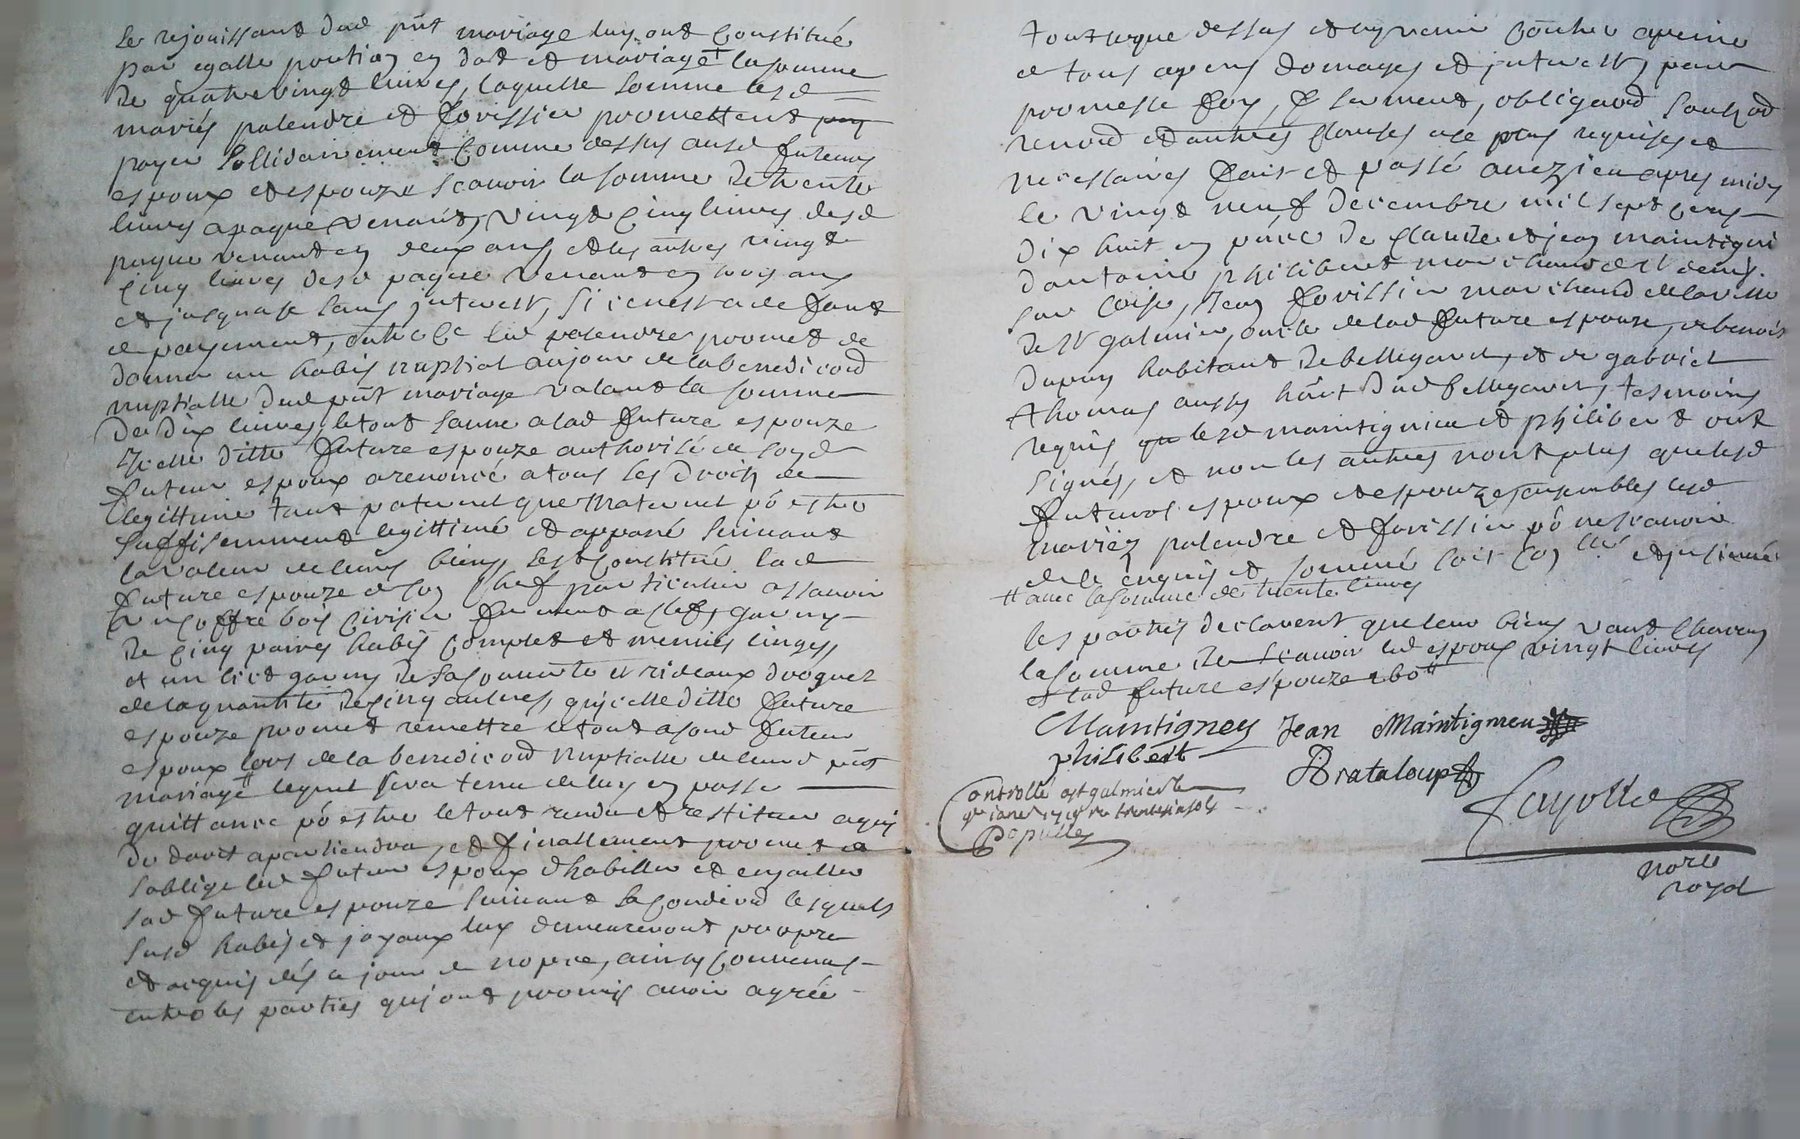 se rejouissant dud pñt mariage luy ont constitué
par egalle portion en dot et mariage + la somme
de quatre vingt livres, laquelle somme lesd
mariés palendre et forissier promettent
payer sollidairement comme dessus ausd futeurs
espoux et espouze scavoir la somme de trente
livres a paque venant, vingt cinq livres desd
paque venant en deux ans, et les autres vingt
cinq livres desd paque venant en trois ans
et jusques sans interest, si ce nest a defaut
de payement, outre ce led palendre promet de
donner un habis nuptial au jour de la benediction
nuptialle dud pñt mariage valant la somme
de dix livres, le tout a lad future espouze
Icelle ditte future espouze authorisée de sond
futeur espoux a renoncé a tous les droits de
legittime tant paternel que maternel pō estre
suffisemment legittimé et appané suivant
la valeur de leurs biens, sest constitué lad
future espouze de son chef particulier assavoir
un coffre bois cirisier fermant a clef, garny
de cinq paires habis complet et menus linges,
et un lict garny de sa couverte et rideaux droguet
de la quantité de cinq aulnes, qu'icelle ditte future
espouze promet remettre le tout a sond futeur
espoux lors de la benediction nuptialle de leurd pñt
mariage # lequel sera tenu de luy en passer
quittance pō estre le tout rendu et restitué a qui
de droit apartiendra, et finallement promet et
soblige led futeur espoux d'habiller et enjoailler
sad future espouze suivant sa condition lesquels
susd habis et joyaux luy demeureront propre
et acquis dés ce jour de nopce, ainsy convenus
entre les parties qui ont promis avoir agrée
tout ce que dessus et ny venir contre a peine
de tous depens domages et interests, par
promesse foy, & serment, obligaōn soubzōn
renonōn et autres clauses a ce plus requises et
necessaires fait et passé a vezzieu apres midy
le vingt neuf decembre mil sept cens
dix huit en pñce de claude et jean maintigni
dantoine philibert marchand de st denis
sur coise, jean forissier marchand de la ville
de st galmier, oncle de lad future espouze, de benoit
dupuy habitant de bellegarde, et de gabriel
thomas aussy hāñt dud bellegarde, tesmoins
requis lesd maintignieu et philibert ont
signés, et non les autres non plus que lesd
futeurs espoux et espouze ensembles lesd
mariéz palendre et forissier pō ne scavoir
de ce enquis et sommé soit conllé et insinué
# avec la somme de trente livres
les parties declarent que leur biens vant chacun
la somme de scavoir led espoux vingt livres
et lad future espouze 160 #
Maintigney Jean Maintignieu
philibert
Brataloup
Controllé a st galmier le
janer 1719
Papulle
fayolle
nore
royal